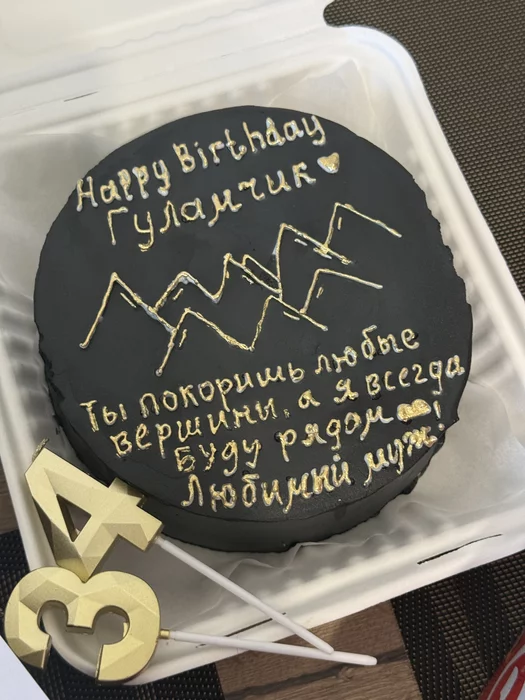 Happy Birthday
Гуламчик
Ты покоришь любые
вершины, а я всегда
Буду рядом
Любимый муж!
4
3